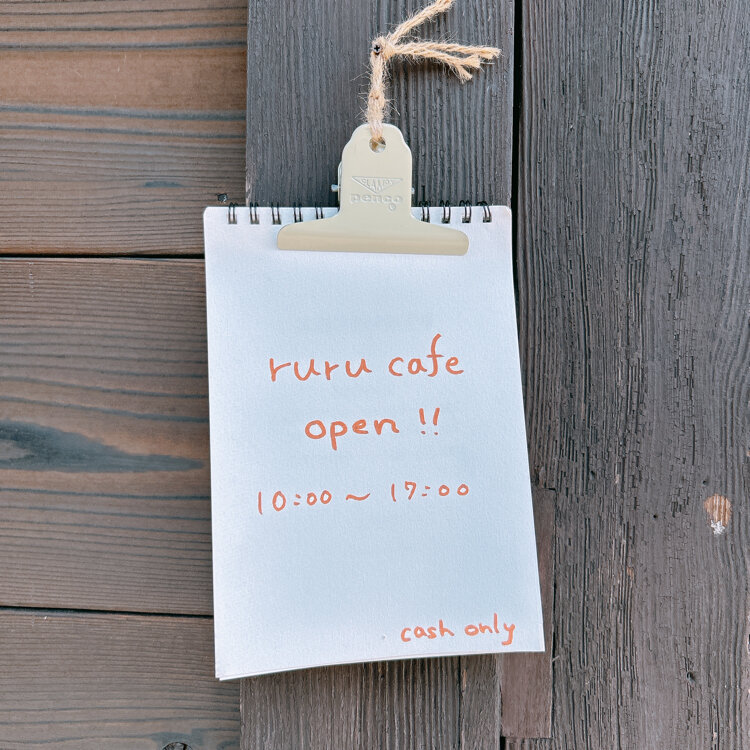 GLAMPS
penco
ruru cafe
open !!
10:00 ~ 17:00
cash only